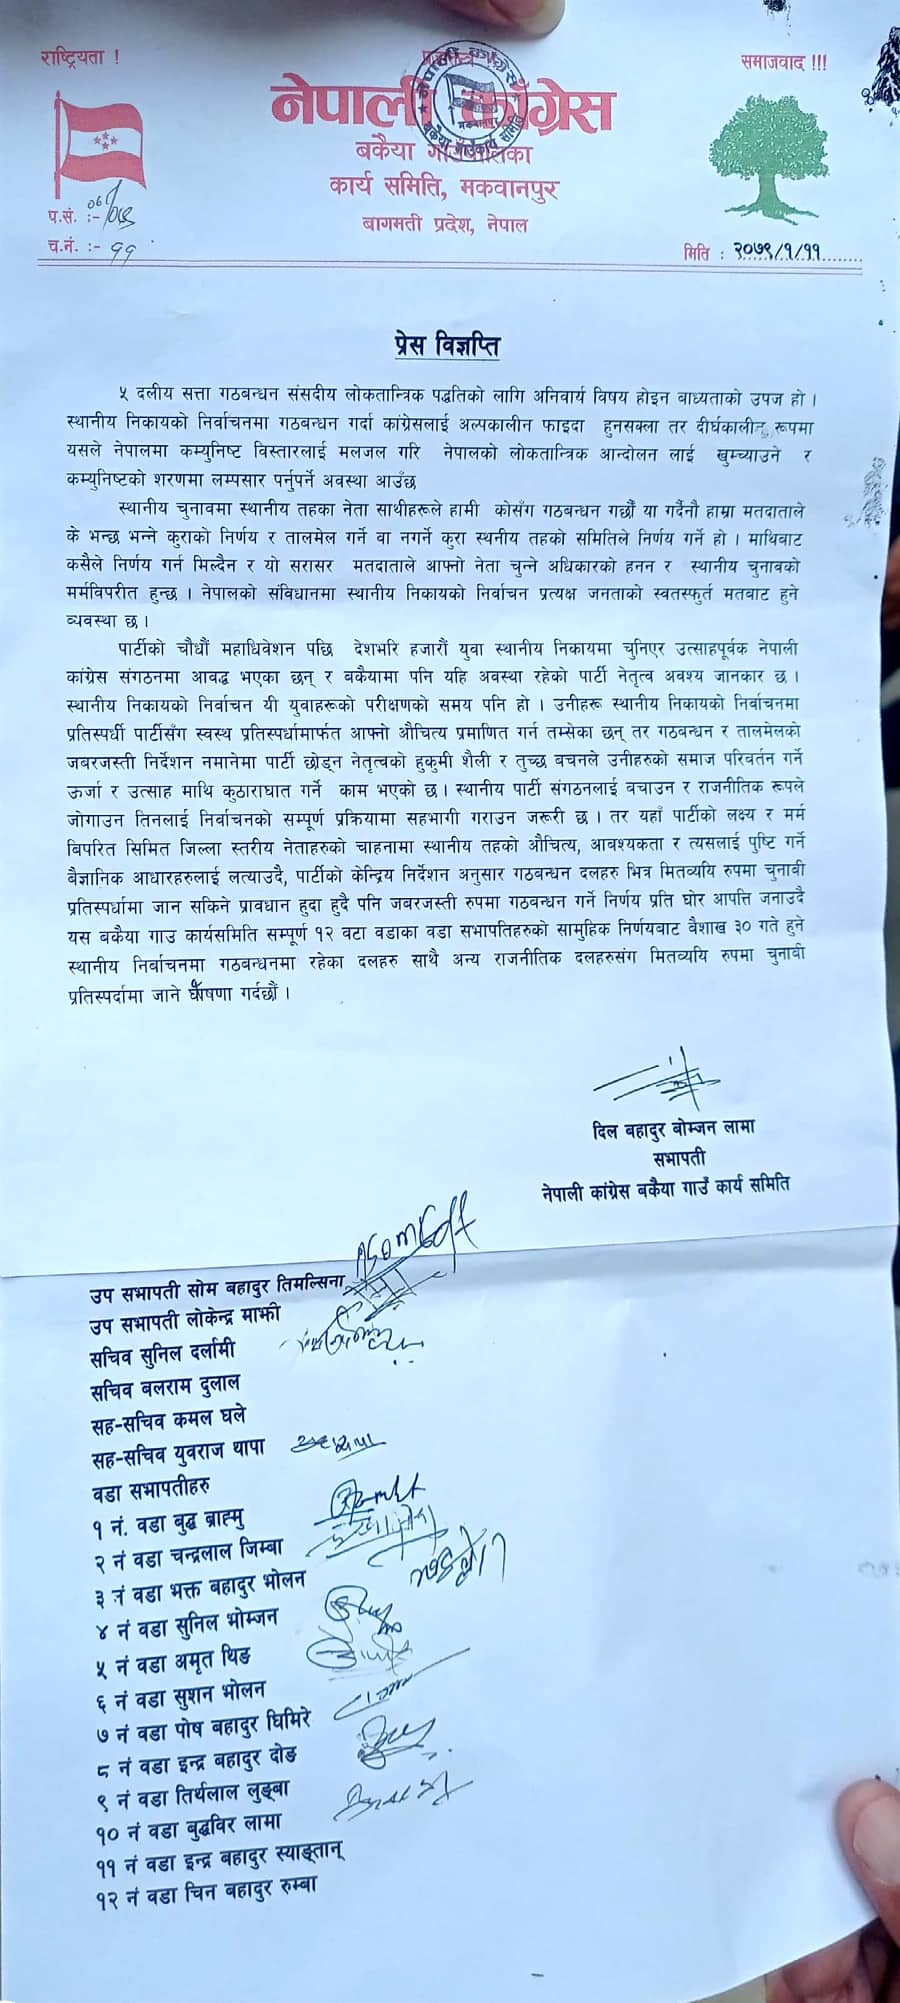 राष्ट्रियता !
समाजवाद !!!
नेपाली काँग्रेस
बकैया गाउँपालिका
कार्य समिति, मकवानपुर
बागमती प्रदेश, नेपाल
प.सं. :-
च.नं. :- ११
मिति : २०७९/१/११
प्रेस विज्ञप्ति
५ दलीय सत्ता गठबन्धन संसदीय लोकतान्त्रिक पद्दतिको लागि अनिवार्य विषय होइन बाध्यताको उपज हो ।
स्थानीय निकायको निर्वाचनमा गठबन्धन गर्दा कांग्रेसलाई अल्पकालीन फाइदा हुनसक्ला तर दीर्घकालीन रूपमा
यसले नेपालमा कम्युनिष्ट विस्तारलाई मलजल गरि नेपालको लोकतान्त्रिक आन्दोलन लाई खुम्च्याउने र
कम्युनिष्टको शरणमा लम्पसार पर्नुपर्ने अवस्था आउँछ
स्थानीय चुनावमा स्थानीय तहका नेता साथीहरूले हामी कोसंग गठबन्धन गर्छौं या गर्दैनौ हाम्रा मतदाताले
के भन्छ भन्ने कुराको निर्णय र तालमेल गर्ने वा नगर्ने कुरा स्थनीय तहको समितिले निर्णय गर्ने हो । माथिबाट
कसैले निर्णय गर्न मिल्दैन र यो सरासर मतदाताले आफ्नो नेता चुन्ने अधिकारको हनन र स्थानीय चुनावको
मर्मविपरीत हुन्छ । नेपालको संविधानमा स्थानीय निकायको निर्वाचन प्रत्यक्ष जनताको स्वतस्फुर्त मतबाट हुने
व्यवस्था छ ।
पार्टीको चौधौं महाधिवेशन पछि देशभरि हजारौं युवा स्थानीय निकायमा चुनिएर उत्साहपूर्वक नेपाली
कांग्रेस संगठनमा आवद्ध भएका छन् र बकैयामा पनि यहि अवस्था रहेको पार्टी नेतृत्व अवश्य जानकार छ ।
स्थानीय निकायको निर्वाचन यी युवाहरूको परीक्षणको समय पनि हो । उनीहरू स्थानीय निकायको निर्वाचनमा
प्रतिस्पर्धी पार्टीसँग स्वस्थ प्रतिस्पर्धामार्फत आफ्नो औचित्य प्रमाणित गर्न तम्सेका छन् तर गठबन्धन र तालमेलको
जबरजस्ती निर्देशन नमानेमा पार्टी छोड्न नेतृत्वको हुकुमी शैली र तुच्छ बचनले उनीहरुको समाज परिवर्तन गर्ने
ऊर्जा र उत्साह माथि कुठाराघात गर्ने काम भएको छ । स्थानीय पार्टी संगठनलाई बचाउन र राजनीतिक रूपले
जोगाउन तिनलाई निर्वाचनको सम्पूर्ण प्रक्रियामा सहभागी गराउन जरूरी छ । तर यहाँ पार्टीको लक्ष्य र मर्म
बिपरित सिमित जिल्ला स्तरीय नेताहरुको चाहनामा स्थानीय तहको औचित्य, आवश्यकता र त्यसलाई पुष्टि गर्ने
बैज्ञानिक आधारहरुलाई लत्याउदै, पार्टीको केन्द्रिय निर्देशन अनुसार गठबन्धन दलहरु भित्र मितव्ययि रुपमा चुनावी
प्रतिस्पर्धामा जान सकिने प्रावधान हुदा हुदै पनि जबरजस्ती रुपमा गठबन्धन गर्ने निर्णय प्रति घोर आपत्ति जनाउदै
यस बकैया गाउ कार्यसमिति सम्पूर्ण १२ वटा वडाका वडा सभापतिहरुको सामुहिक निर्णयबाट बैशाख ३० गते हुने
स्थानीय निर्वाचनमा गठबन्धनमा रहेका दलहरु साथै अन्य राजनीतिक दलहरुसंग मितव्ययि रुपमा चुनावी
प्रतिस्पर्दामा जाने घोषणा गर्दछौं ।
दिल बहादुर बोम्जन लामा
सभापती
नेपाली कांग्रेस बकैया गाउँ कार्य समिति
उप सभापती सोम बहादुर तिमल्सिना
उप सभापती लोकेन्द्र माझी
सचिव सुनिल दर्लामी
सचिव बलराम दुलाल
सह-सचिव कमल घले
सह-सचिव युवराज थापा
वडा सभापतीहरु
१ नं. वडा बुद्ध ब्राह्मु
२ नं वडा चन्द्रलाल जिम्बा
३ नं वडा भक्त बहादुर भोलन
४ नं वडा सुनिल भोम्जन
५ नं वडा अमृत थिङ
६ नं वडा सुशन भोलन
७ नं वडा पोष बहादुर घिमिरे
८ नं वडा इन्द्र बहादुर दोङ
९ नं वडा तिर्थलाल लुङ्बा
१० नं वडा बुद्धविर लामा
११ नं वडा इन्द्र बहादुर स्याङ्तान्
१२ नं वडा चिन बहादुर रुम्बा